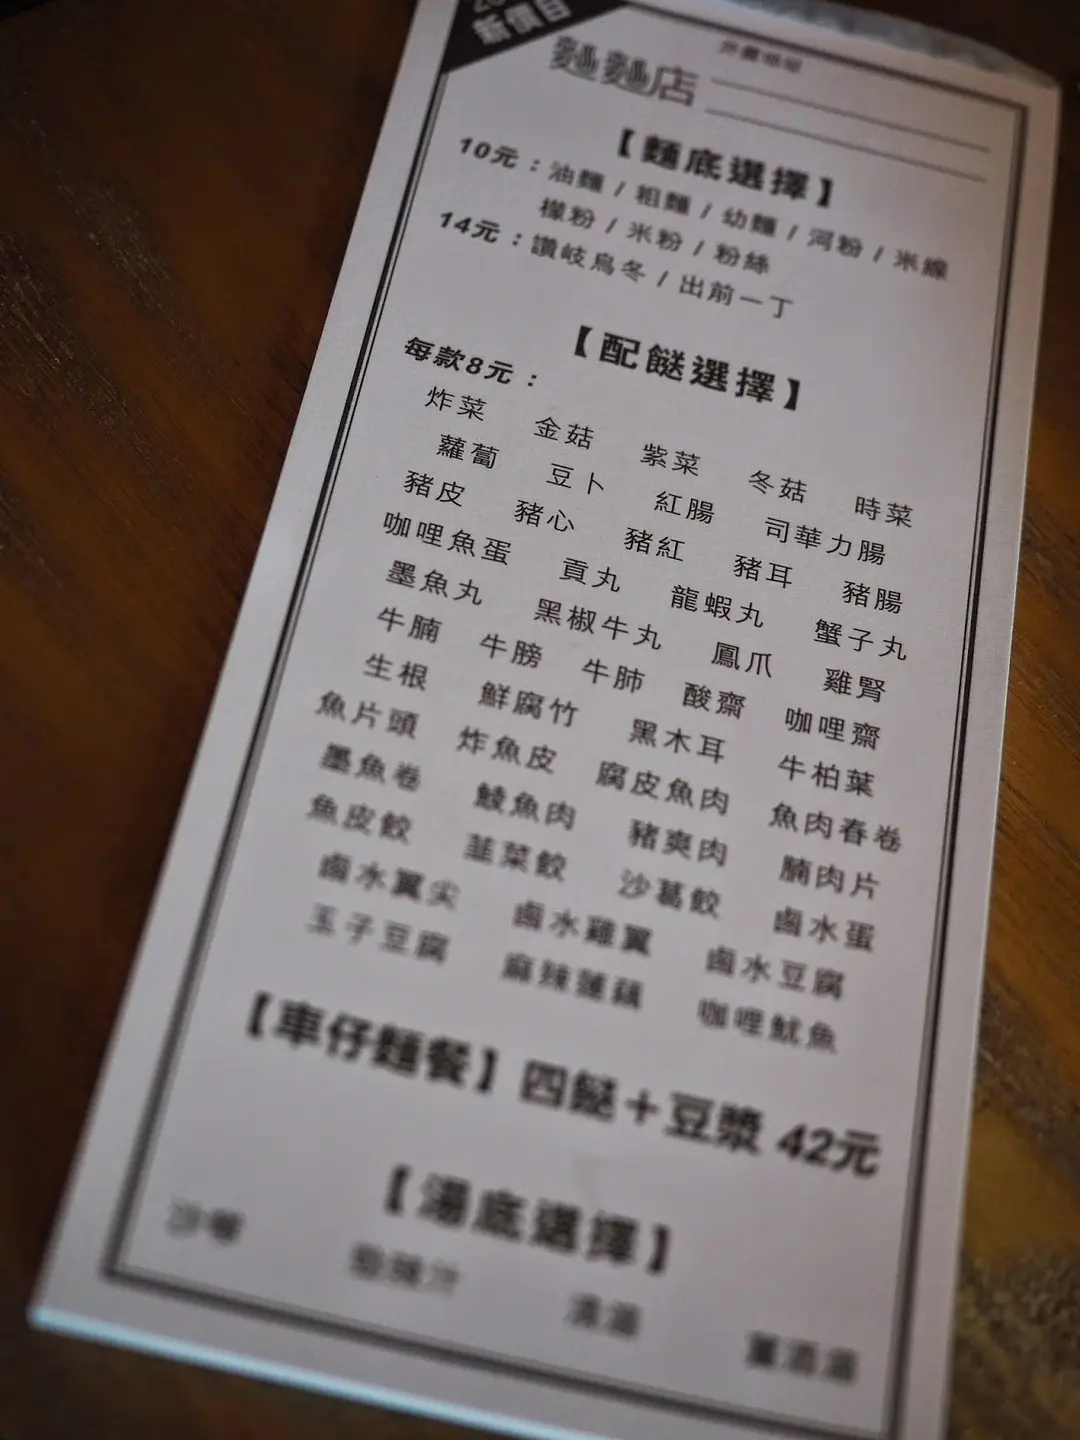 新價目
麵麵店
【麵底選擇】
10元：油麵 / 粗麵 / 幼麵 / 河粉 / 米線
檬粉 / 米粉 / 粉絲
14元：讚岐烏冬 / 出前一丁
【配餸選擇】
每款8元：
炸菜 金菇 紫菜 冬菇 時菜
蘿蔔 豆卜 紅腸 司華力腸
豬皮 豬心 豬紅 豬耳 豬腸
咖哩魚蛋 貢丸 龍蝦丸 蟹子丸
墨魚丸 黑椒牛丸 鳳爪 雞腎
牛腩 牛膀 牛肺 酸齋 咖哩齋
生根 鮮腐竹 黑木耳 牛柏葉
魚片頭 炸魚皮 腐皮魚肉 魚肉春卷
墨魚卷 鯪魚肉 豬爽肉 腩肉片
魚皮餃 韮菜餃 沙葛餃 鹵水蛋
鹵水翼尖 鹵水雞翼 鹵水豆腐
玉子豆腐 麻辣蓮藕 咖哩魷魚
【車仔麵餐】四餸＋豆漿 42元
【湯底選擇】
沙嗲 清湯